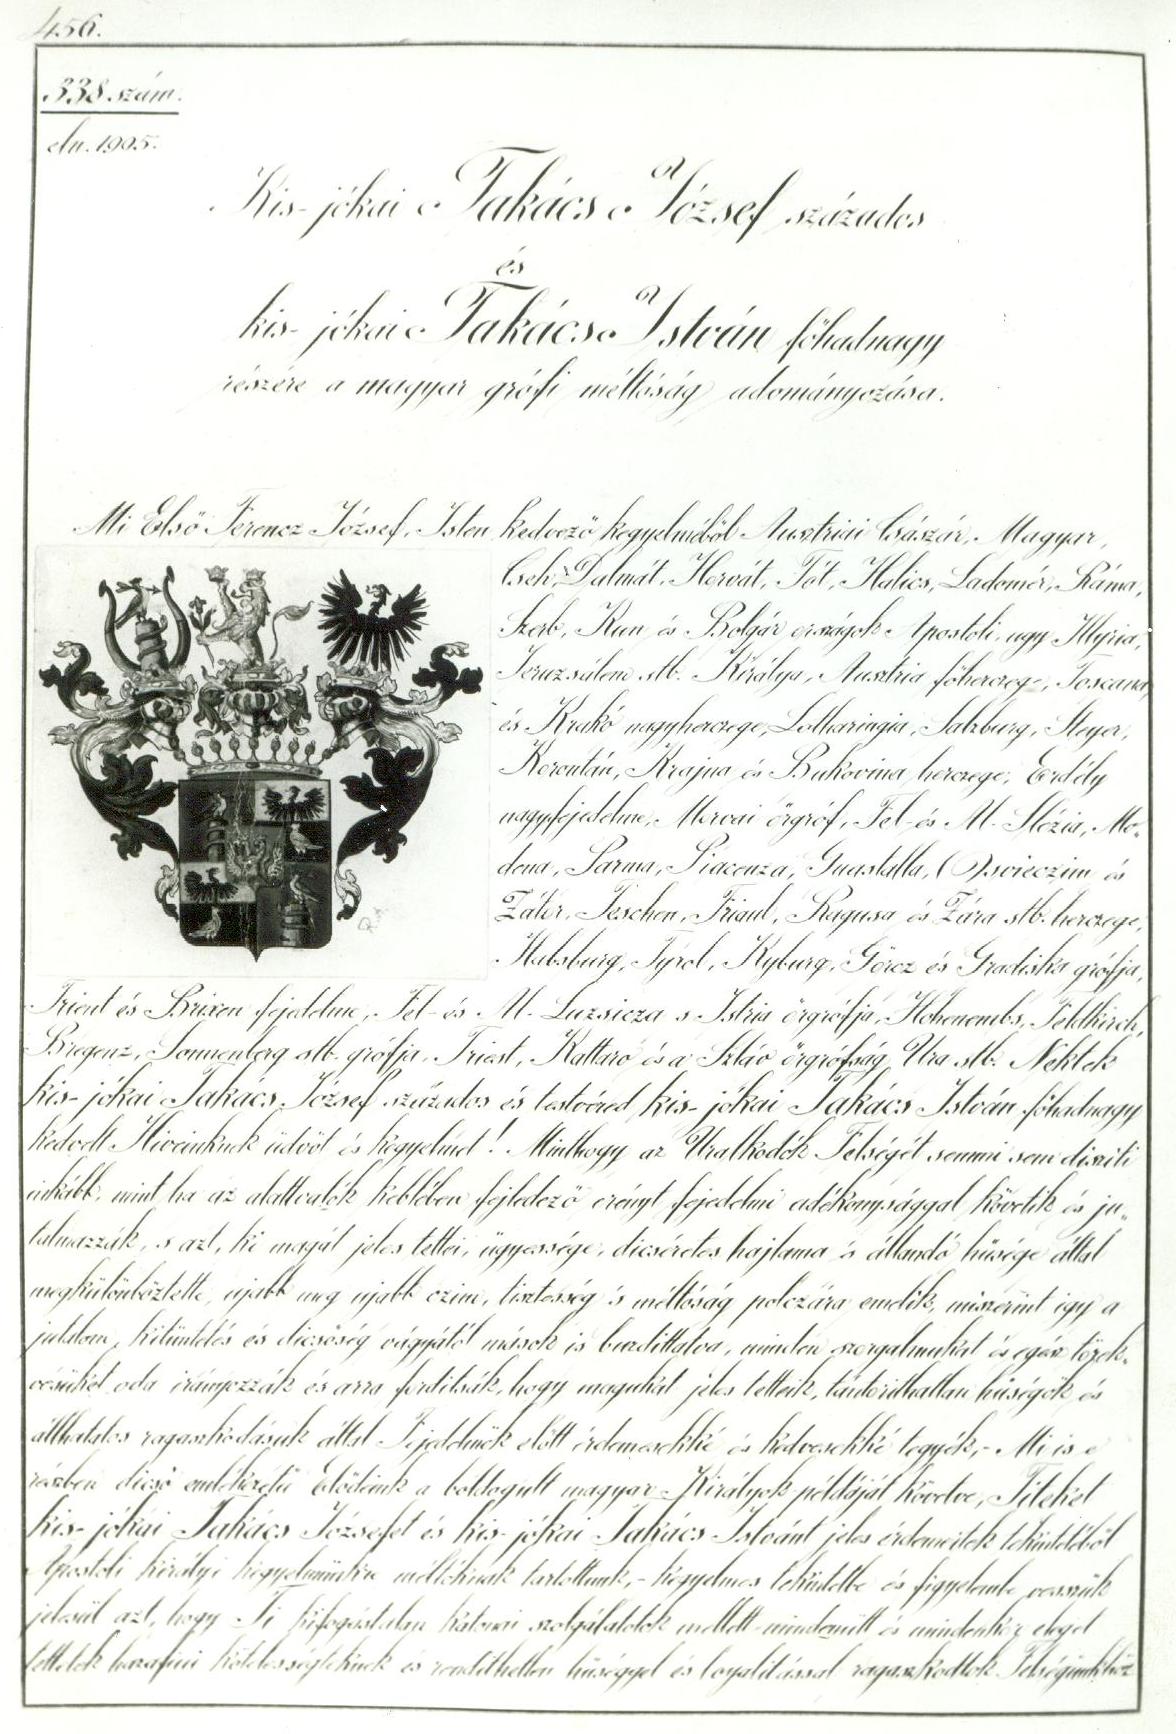 456.
338 szám.
eln. 1905.
Kis-jókai Takács József százados
és
kis-jókai Takács István főhadnagy
részére a magyar grófi méltóság adományozása.
Mi Első Ferencz József, Isten kedvező kegyelméből Ausztriai Császár, Magyar,
Cseh, Dalmát, Horvát, Tót, Halics, Ladomér, Ráma,
Szerb, Kun és Bolgár országok Apostoli, ugy Illyria,
Jeruzsálem stb. Királya, Ausztria főherczege, Toscana
és Krakó nagyherczege, Lotharingia, Salzburg, Steyer,
Korontán, Krajna és Bukovina herczege, Erdély
nagyfejedelme, Morvai őrgróf, Fel- és Al- Slézia, Mo-
dena, Parma, Piacenza, Guastalla, Osvieczim és
Zátor, Teschen, Friaul, Ragusa és Zára stb. herczege,
Habsburg, Tyrol, Kyburg, Görcz és Gradiska grófja,
Trient és Brixen fejedelme, Fel- és Al- Luzsicza s Istria őrgrófja, Hohenembs, Feldkirch,
Bregenz, Sonnenberg stb. grófja, Triest, Kattaro és a Szláv őrgrófság Ura stb. Néktek
kis-jókai Takács József százados és testvéred kis-jókai Takács István főhadnagy
kedvelt Hiveinknek üdvöt és kegyelmet! Minthogy az Uralkodók Felségét semmi sem disziti
inkább, mint ha az alattvalók keblében fejledező erényt fejedelmi adékonysággal követik és ju-
talmazzák, s azt, ki magát jeles tettei, ügyessége, dicséretes hajlama és állandó hűsége által
megkülönböztette, ujabb meg ujabb czim, tisztesség s méltóság polczára emelik, miszerint igy a
jutalom, kitüntetés és dicsőség vágyától mások is buzdittatva, minden szorgalmukat és egész törek-
vésüket oda irányozzák és arra forditsák, hogy magukat jeles tetteik, tántorithatlan hűségök és
állhatatos ragaszkodásuk által Fejedelmök előtt érdemesekké és kedvesekké tegyék,- Mi is e
részben dicső emlékezetű Elődeink a boldogult magyar Királyok példáját követve, Titeket
kis-jókai Takács Józsefet és kis-jókai Takács Istvánt jeles érdemeitek tekintetéből
Apostoli királyi kegyelmünkre méltóknak tartottunk,- kegyelmes tekintetbe és figyelembe vesszük
jelesül azt, hogy Ti kifogástalan katonai szolgálatotok mellett mindenütt és mindenkor eleget
tettetek hazafiui kötelességteknek és rendithetlen hűséggel és loyalitással ragaszkodtok Felségünkhöz